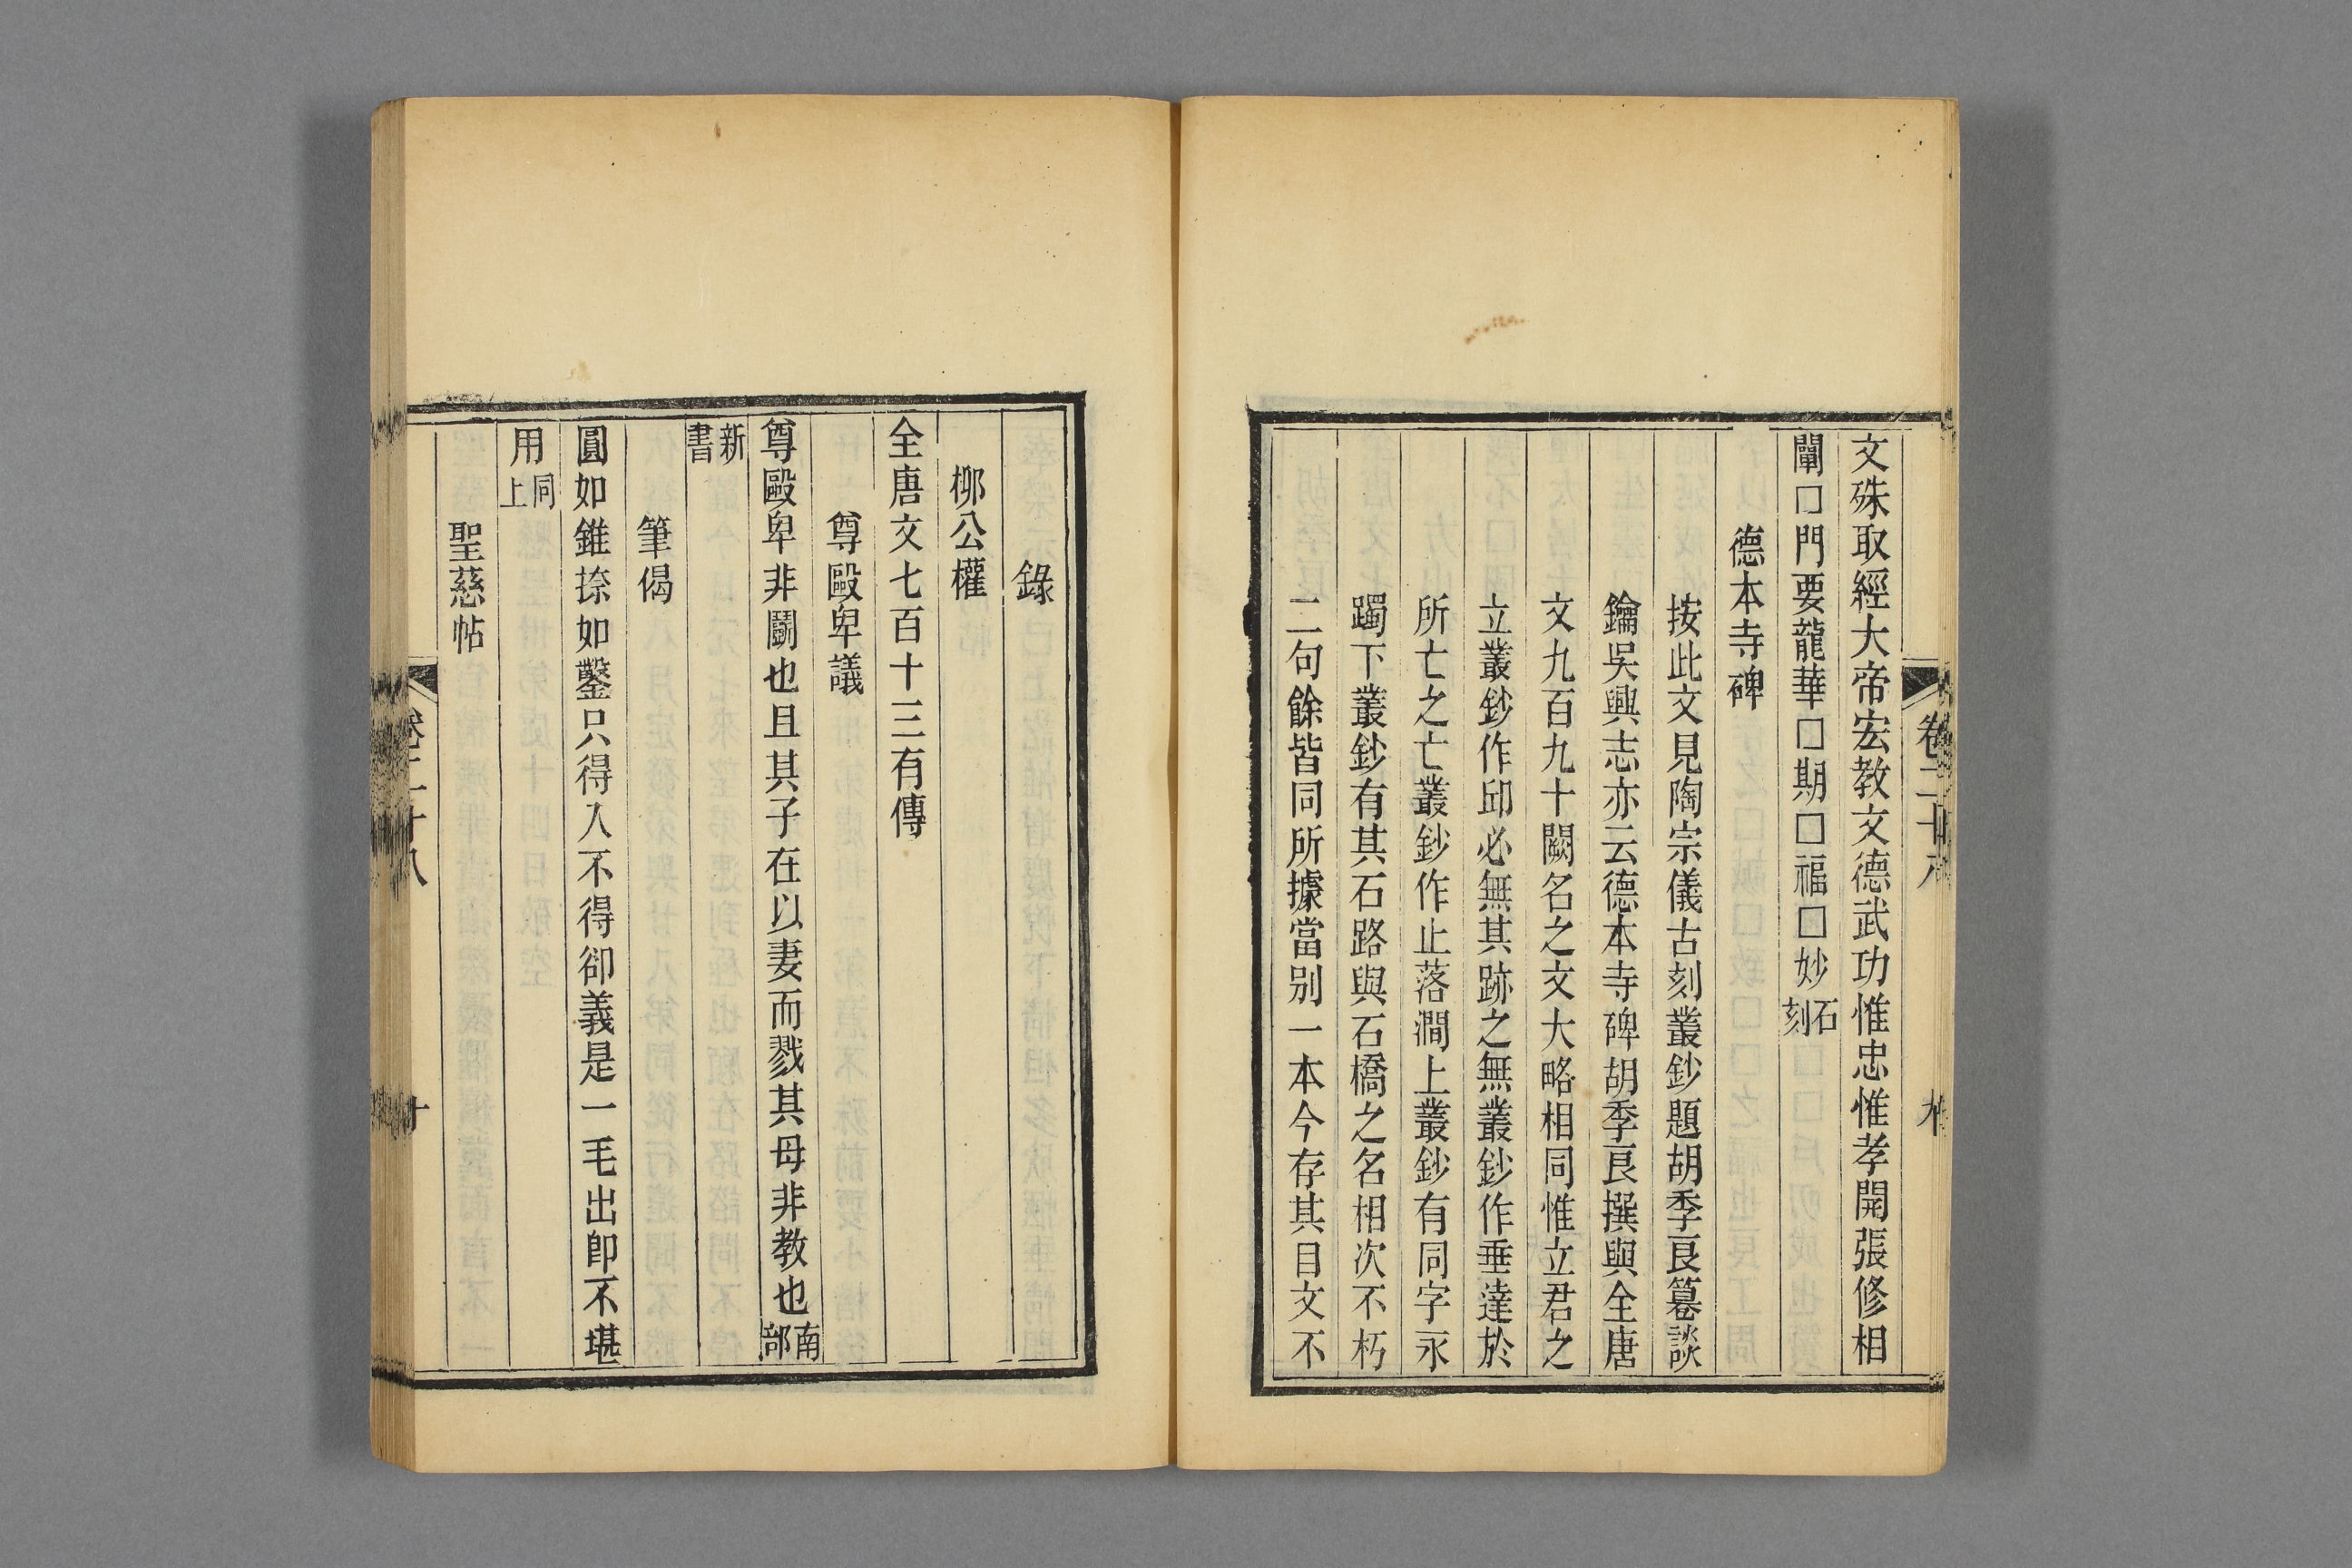 卷二十八 九
文殊取經大帝宏教文德武功惟忠惟孝開張修相
闡□門要龍華□期□福□妙石刻
德本寺碑
按此文見陶宗儀古刻叢鈔題胡季良篹談
鑰吳興志亦云德本寺碑胡季良撰與全唐
文九百九十闕名之文大略相同惟立君之
立叢鈔作邱必無其跡之無叢鈔作垂達於
所亡之亡叢鈔作止落澗上叢鈔有同字永
躅下叢鈔有其石路與石橋之名相次不朽
二句餘皆同所據當別一本今存其目文不
錄
柳公權
全唐文七百十三有傳
尊毆卑議
尊毆卑非鬭也且其子在以妻而戮其母非教也南部
新書
筆偈
圓如錐捺如鑿只得入不得卻義是一毛出卽不堪
用同上
聖慈帖
卷二十八 十